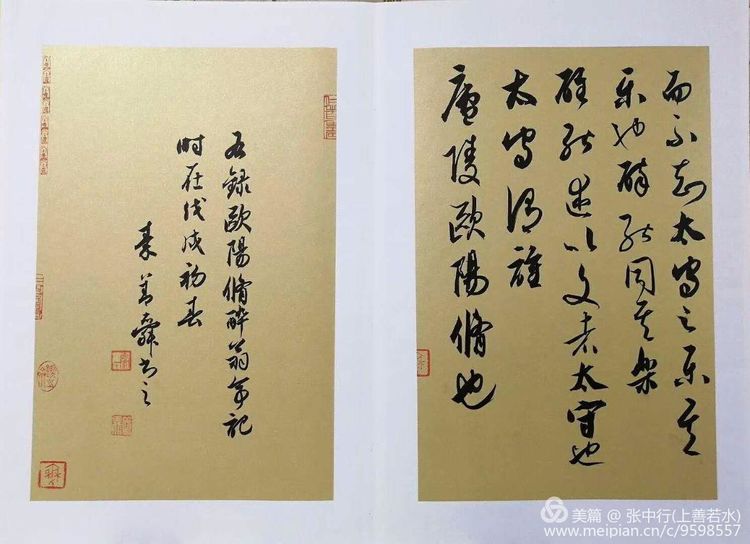 而不知太守之乐其
乐也醉能同其樂
醒能述以文者太守也
太守谓誰
廬陵歐陽脩也
右録歐陽脩醉翁亭記
时在戊戌初春
善舜书之
美篇 @ 张中行(上善若水)
www.meipian.cn/c/9598557